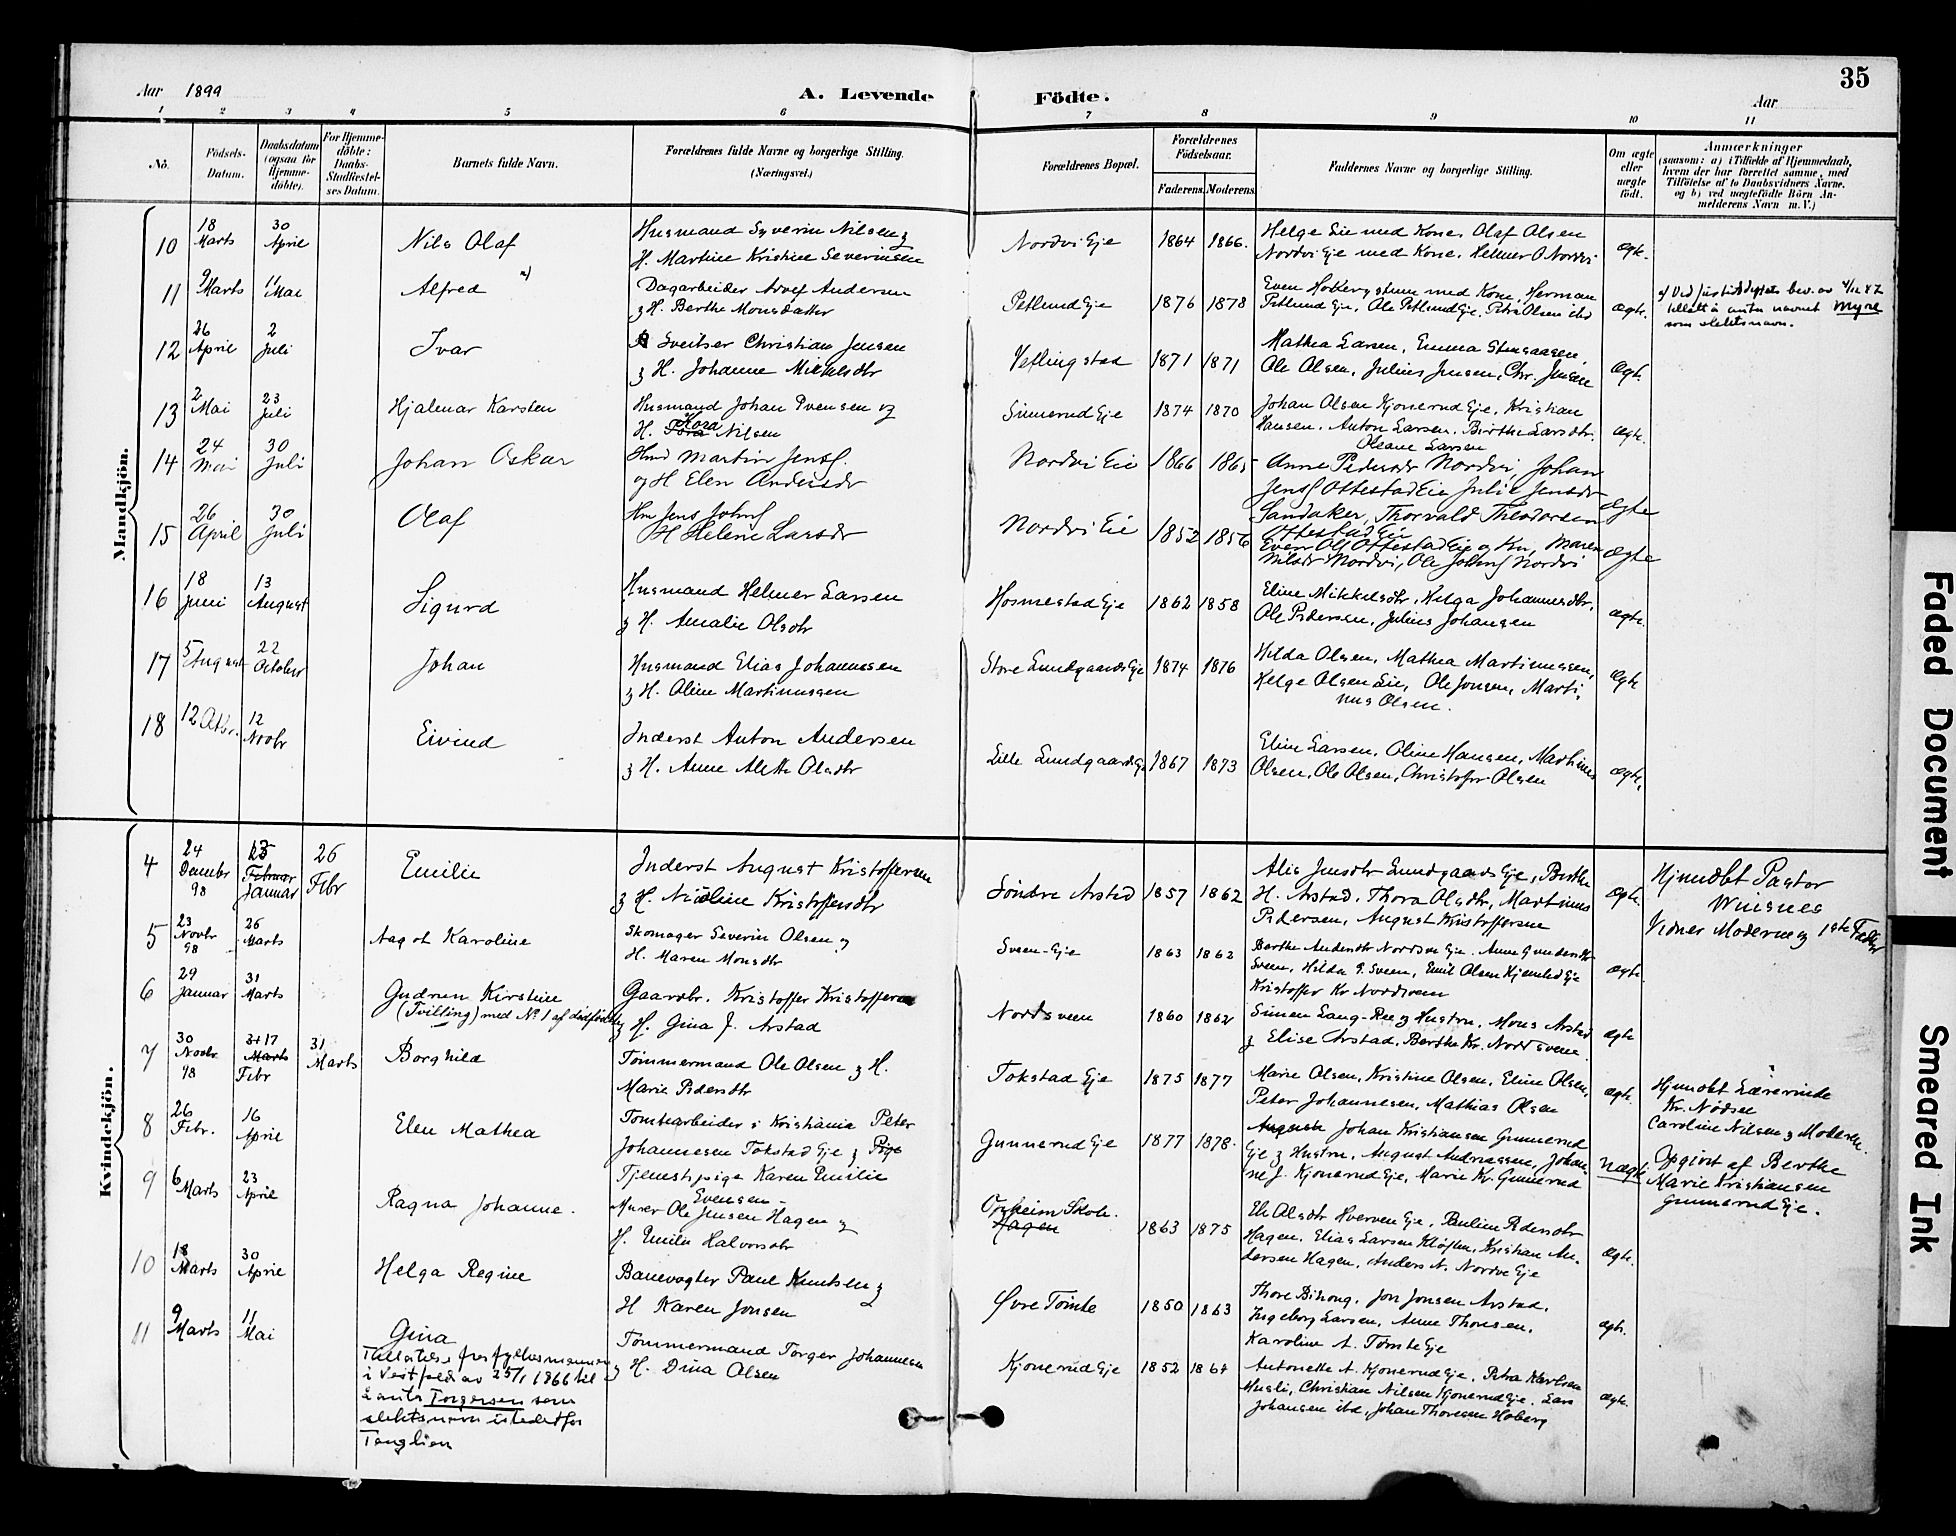 35
Aar 1899
A. Levende Födte.
Aar
1 2 3 4 5 6 7 8 9 10 11
No.
Födsels-
Datum.
Daabsdatum
(ogsaa for
Hjemme-
döbte).
For Hjemme-
döbte:
Daabs-
Stadfæstel-
ses Datum.
Barnets fulde Navn.
Forældrenes fulde Navne og borgerlige Stilling.
(Næringsvei.)
Forældrenes Bopæl.
Forældrenes
Födselsaar.
Faderens. Moderens.
Faddernes Navne og borgerlige Stilling.
Om ægte
eller
uægte
födt.
Anmærkninger
(saasom: a) i Tilfælde af Hjemmedaab,
hvem der har forrettet samme, med
Tilföielse af to Daabsvidners Navne.
og b) ved uægtefödte Börn An-
melderens Navn m. V.)
Mandkjön.
10
18
Marts
30
April
Nils Olaf
Husmand Syverin Nilsen &
H. Martine Kristine Severinsen
Nordvi Eje 1864 1866.
Helge Lie med Kone, Olaf Olsen
Nordvi Eje med Kone, Helmer O Nordvi
ægte.
11
9
Marts
11
Mai
Alfred a)
Dagarbeider Adolf Andersen
& H. Berthe Monsdatter
Petlund Eje 1876 1878
Even Hobbergstuen med Kone, Herman
Petlund Eje, Ole Petlund Eje, Petra Olsen ibd
ægte.
a) Ved Justitsdeptets bev. av 4/12 42
tillatt å anta navnet Myre
som slektsnavn.
12
26
April
2
Juli
Ivar
Sveitser Christian Jensen
& H. Johanne Mikkelsdtr
Veflingstad 1871 1871
Mathea Larsen, Emma Stensaasen,
Ole Olsen, Julius Jensen, Chr. Jensen
ægte.
13
2
Mai
23
Juli
Hjalmar Karsten
Husmand Johan Svensen og
H. Thora Nilsen
Sinnerud Eje 1874 1870
Johan Olsen Kjonerud Eje, Kristian
Hansen, Anton Larsen, Berthe Larsdtr.
Oleane Larsen
ægte.
14
24
Mai
30
Juli
Johan Oskar
Hmd Martin Jens.
og H Elen Andersdr
Nordvi Eie 1866 1865
Anne Pedersdr Nordvi, Johan
Jens Ottestad Eie Julie Jensdr
Sandaker, Thorvald Theodorsen
Ottestad Eie
ægte
15
26
April
30
Juli
Olaf
Hm Jens Johns
H Helene Larsdr
Nordvi Eie 1852 1856
Even Ols Ottestad Eie og Kn, Maren
Nilsdr Nordvi, Ole Johns Nordvi
ægte
16
18
Juni
13
August
Sigurd
Husmand Helmer Larsen
& H. Amalie Olsdtr
Hosmestad Eje 1862 1858
Eline Mikkelsdtr, Helga Johannesdtr,
Ole Pedersen, Julius Johansen
ægte.
17
5
August
22
October
Johan
Husmand Elias Johannessen
& H. Oline Martinussen
Store Lundgaards Eje 1874 1876
Hilda Olsen, Mathea Martinussen,
Helge Olsen Lie, Ole Jonsen, Marti-
nus Olsen.
ægte
18
12 Oktbr.
12
Novbr
Eivind
Inderst Anton Andersen
& H. Anne Alette Olsdtr
Lille Lundgaards Eje 1867 1873
Eline Larsen, Oline Hansen, Martinus
Olsen, Ole Olsen, Christoffer Olsen
ægte.
Kvindekjön.
4
24
Decembr
98
25
Februar
Januar
26
Febr
Emilie
Inderst August Kristoffersen
& H. Nicoline Kristoffersdtr
Söndre Arstad 1857 1862
Alis Jensdtr Lundgaards Eje, Berthe
H. Arstad, Thora Olsdtr, Martinus
Pedersen, August Kristoffersen
ægte.
Hjemdöbt Pastor
Wiisnes
Vidner Moderen og 1ste Fadder
5
23
Novbr
98
26
Marts
Aagot Karoline
Skomager Severin Olsen og
H. Maren Monsdtr
Sveen-Eje 1863 1862
Berthe Andersdtr Nordsveen Eje, Anne Gundersdtr
Sveen, Hilda G. Sveen, Emil Olsen Kjemstad Eje
Kristoffer Kr Nordsveen
ægte.
6
29
Januar
31
Marts
Gudrun Kirstine
(Tvilling) med No 1 af dødfødte
Gaardbr. Kristoffer Kristoffersen
& H. Gina J. Arstad
Nordsveen 1860 1862
Simen Lang-Ree og Hustru, Mons Arstad
& Elise Arstad, Berthe Kr. Nordsveen
ægte
7
30
Novbr
98
31 17
Marts
Febr
31
Marts
Borghild
Tömmermand Ole Olsen & H.
Marie Pedersdtr
Tokstad Eje 1875 1877
Marie Olsen, Kristine Olsen, Eline Olsen,
Peter Johannesen, Mathias Olsen
ægte.
Hjemdöbt Lærerinde
Kr. Nödsee
Caroline Nilsen & Moderen.
8
26
Febr.
16
April
Elen Mathea
Tomtearbeider i Kristiania Peter
Johannesen Tokstad Eje & Pige
Tjenestepige Karen Emilie
Evensen
Gunnerud Eje 1877 1878.
August Johan Kristiansen Gunnerud
Eje & Hustru, August Andreassen, Johan-
ne J. Kjonerud Eje, Marie Kr. Gunnerud
uægte
Opgivet af Berthe
Marie Kristiansen
Gunnerud Eje.
9
6
Marts
23
April
Ragna Johanne.
Murer Ole Jensen Hagen og
H. Emilie Halvorsdtr
Opheim Skole.
Hagen
1863 1875
Eli Olsdtr Hverven Eje, Pauline Pedersdtr
Hagen, Elias Larsen Kløften, Kristian An-
dersen Hagen, Anders N. Nordvi Eje
ægte.
10
18
Marts
30
April
Helga Regine
Banevogter Paul Knutsen &
H Karen Jonsen
Øvre Tomte 1850 1863
Thore Bihong, Jon Jonsen Arstad,
Ingeborg Larsen, Anne Thoresen,
Karoline A. Tomte Eje
ægte.
11
9
Marts
11
Mai
Gina
Tillatelse fra fylkesmannen
i Vestfold av 25/1 1966 til
å anta Torgersen som
slektsnavn istedetfor
Tanglien
Tømmermand Torger Johannesen
& H. Dina Olsen
Kjonerud Eje 1852 1864
Antonette A. Kjonerud Eje, Petra Karlsen
Musli, Christian Nilsen Kjonerud Eje, Lars
Johansen ibd, Johan Thoresen Hoberg
ægte.
Faded Document
Smeared Ink